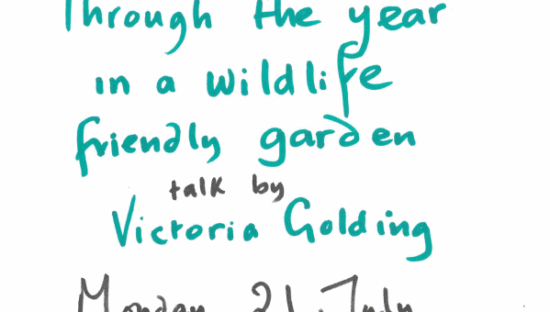 Through the year
in a wildlife
friendly garden
talk by
Victoria Golding
Monday 21 July